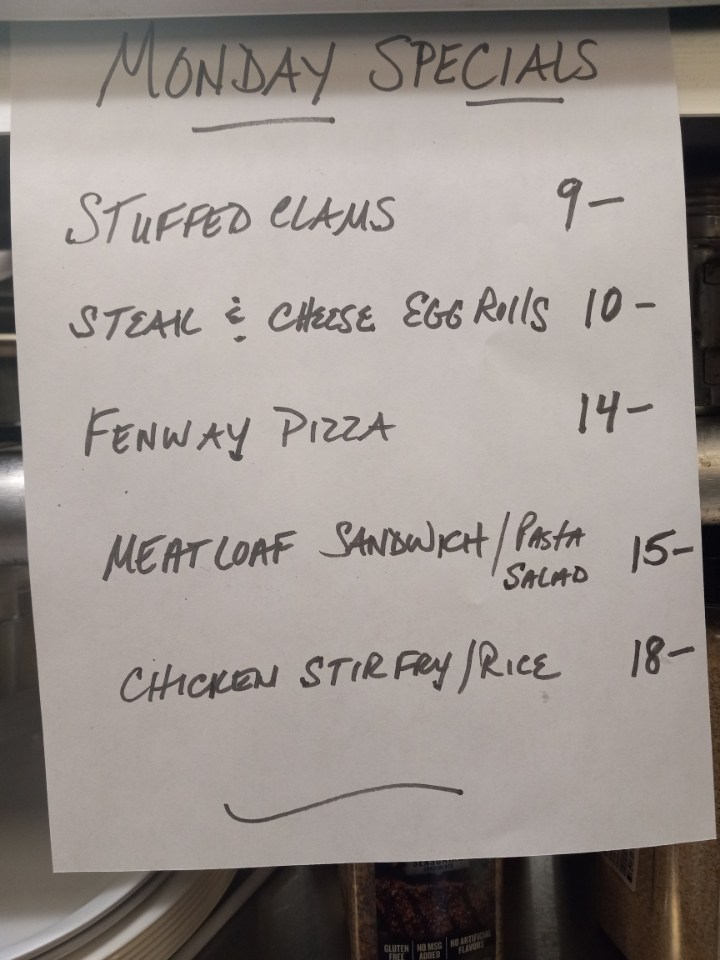 MONDAY SPECIALS
STUFFED CLAMS 9-
STEAK & CHEESE EGG ROLLS 10-
FENWAY PIZZA 14-
MEATLOAF SANDWICH/PASTA SALAD 15-
CHICKEN STIR FRY/RICE 18-
GLUTEN FREE
NO MSG ADDED
NO ARTIFICIAL FLAVORS